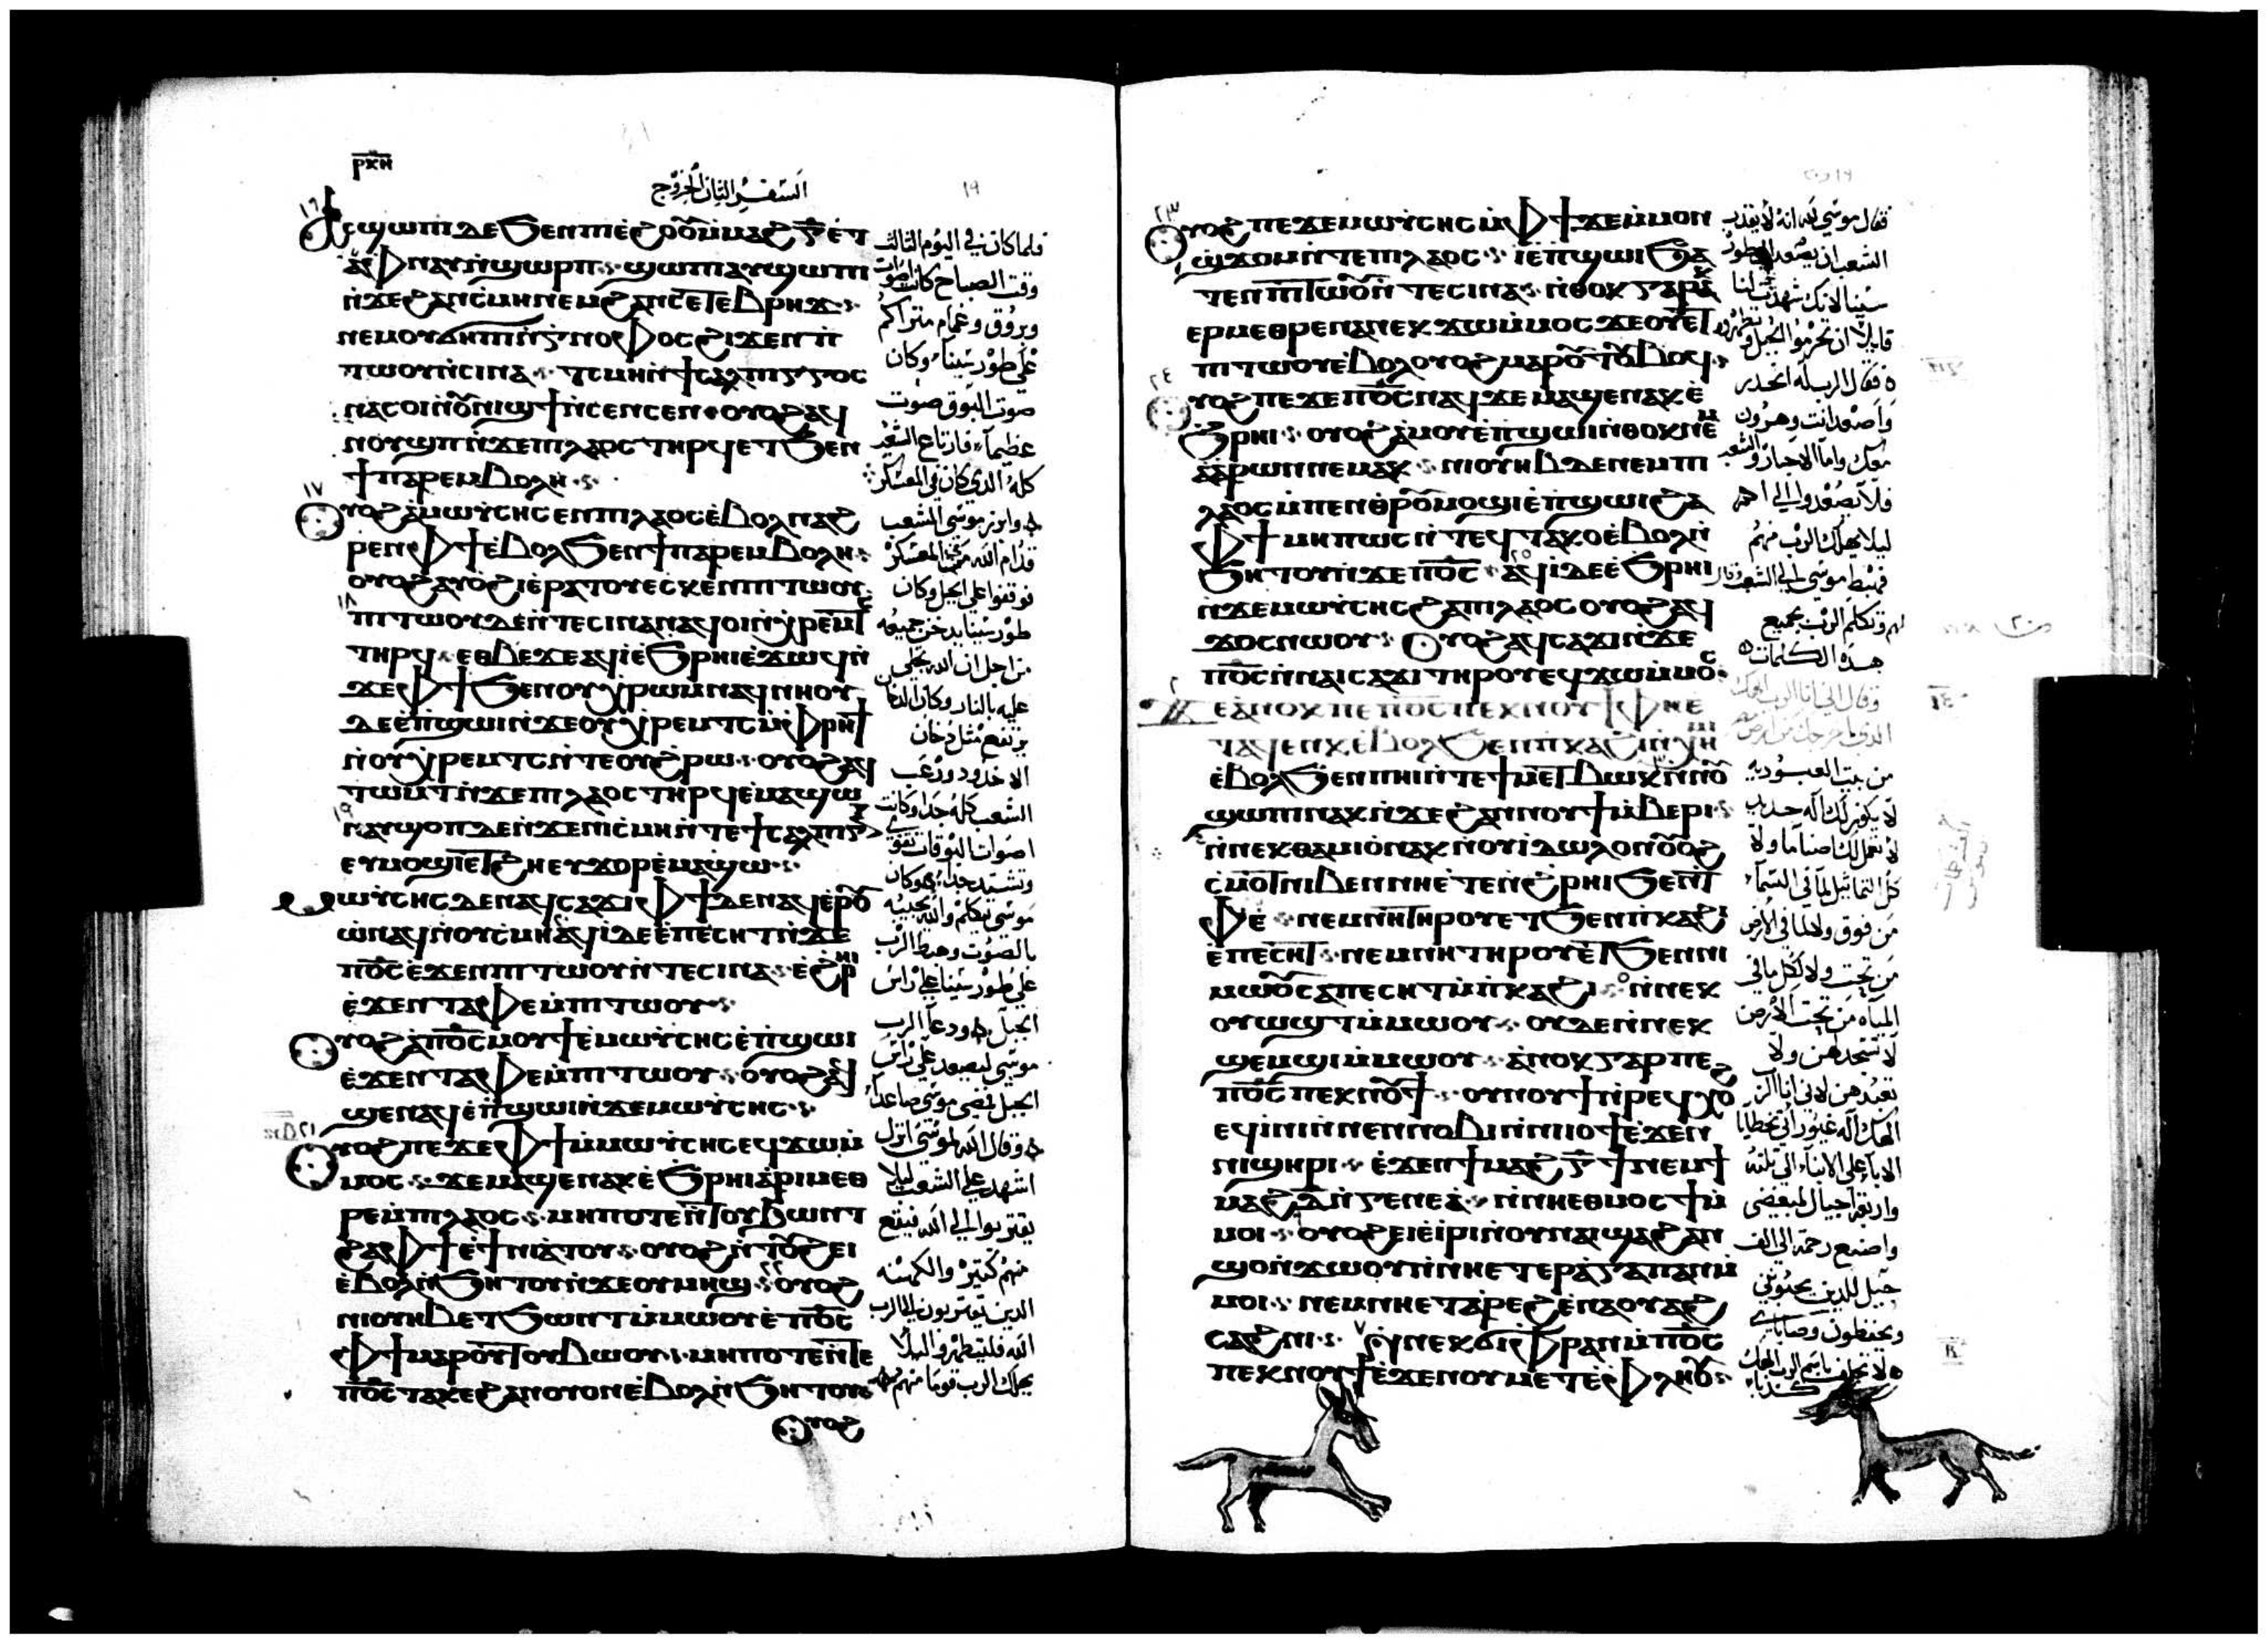 ⲣⲕⲏ
السفر الثاني الخروج
١٩
١٦
ⲁⲥϣⲱⲡⲓ ⲇⲉ ϧⲉⲛ ⲡⲓⲉϩⲟⲟⲩ ⲙⲙⲁϩ ⲅ̅ ⲉⲧ
ⲁⲫⲛⲁⲩ ⲛϣⲱⲣⲡ · ϣⲱⲡⲓ ⲁⲩϣⲱⲡⲓ
ⲛϫⲉ ϩⲁⲛⲥⲙⲏ ⲛⲉⲙ ϩⲁⲛⲥⲉⲧⲉⲃⲣⲏϫ ·
ⲛⲉⲙ ⲟⲩϭⲏⲡⲓ ⲛⲅⲛⲟⲫⲟⲥ ϩⲓϫⲉⲛ ⲡⲓ
ⲧⲱⲟⲩ ⲛⲥⲓⲛⲁ · ⲧⲥⲙⲏ ⲛϯⲥⲁⲗⲡⲓⲅⲅⲟⲥ
ⲛⲁⲥⲟⲓ ⲛⲟⲩⲛⲓϣϯ ⲛⲥⲉⲛⲥⲉⲛ · ⲟⲩⲟϩ ⲁϥ
ⲛⲟⲩϣⲡ ⲛϫⲉ ⲡⲓⲗⲁⲟⲥ ⲧⲏⲣϥ ⲉⲧϧⲉⲛ
ϯⲡⲁⲣⲉⲙⲃⲟⲗⲏ ·
١٧
ⲟⲩⲟϩ ⲁⲙⲱⲩⲥⲏⲥ ⲉⲛ ⲡⲓⲗⲁⲟⲥ ⲉⲃⲟⲗ ⲛⲁϩ
ⲣⲉⲛ ⲫϯ ⲉⲃⲟⲗ ϧⲉⲛ ϯⲡⲁⲣⲉⲙⲃⲟⲗⲏ ·
ⲟⲩⲟϩ ⲁⲩⲟϩⲓ ⲉⲣⲁⲧⲟⲩ ⲉⲥⲕⲉⲛ ⲡⲓⲧⲱⲟⲩ
١٨
ⲡⲓⲧⲱⲟⲩ ⲇⲉ ⲛⲧⲉ ⲥⲓⲛⲁ ⲛⲁϥⲟⲓ ⲛⲭⲣⲉⲙⲧⲥ
ⲧⲏⲣϥ · ⲉⲑⲃⲉ ϫⲉ ⲁϥⲓ ⲉϧⲣⲏⲓ ⲉϫⲱϥ ⲛ
ϫⲉ ⲫϯ ϧⲉⲛ ⲟⲩⲭⲣⲱⲙ ⲛⲁϥⲛⲏⲟⲩ
ⲇⲉ ⲉⲡϣⲱⲓ ⲛϫⲉ ⲟⲩⲭⲣⲉⲙⲧⲥ ⲙⲫⲣⲏϯ
ⲛⲟⲩⲭⲣⲉⲙⲧⲥ ⲛⲧⲉ ⲟⲩϩⲣⲱ · ⲟⲩⲟϩ ⲁϥ
ⲧⲱⲙⲧ ⲛϫⲉ ⲡⲓⲗⲁⲟⲥ ⲧⲏⲣϥ ⲉⲙⲁϣⲱ
١٩
ⲛⲁⲩϣⲟⲡ ⲇⲉ ⲛϫⲉ ⲛⲓⲥⲙⲏ ⲛⲧⲉ ϯⲥⲁⲗⲡⲓⲅⲝ
ⲉⲩⲙⲟϣⲓ ⲉⲧϩⲏ ⲉⲩϫⲟⲣ ⲉⲙⲁϣⲱ ·
ⲙⲱⲩⲥⲏⲥ ⲇⲉ ⲛⲁϥⲥⲁϫⲓ ⲫϯ ⲇⲉ ⲛⲁϥⲉⲣⲟⲩ
ⲱ ⲛⲁϥ ⲛⲟⲩⲥⲙⲏ ⲁϥⲓ ⲇⲉ ⲉⲡⲉⲥⲏⲧ ⲛϫⲉ
ⲡⲟ̅ⲥ̅ ⲉϫⲉⲛ ⲡⲓⲧⲱⲟⲩ ⲛⲧⲉ ⲥⲓⲛⲁ · ⲉϩⲣⲏⲓ
ⲉϫⲉⲛ ⲧⲁⲫⲉ ⲙⲡⲓⲧⲱⲟⲩ ·
ⲟⲩⲟϩ ⲁⲡⲟ̅ⲥ̅ ⲙⲟⲩϯ ⲉⲙⲱⲩⲥⲏⲥ ⲉⲡϣⲱⲓ
ⲉϫⲉⲛ ⲧⲁⲫⲉ ⲙⲡⲓⲧⲱⲟⲩ · ⲟⲩⲟϩ ⲁϥ
ϣⲉⲛⲁϥ ⲉⲡϣⲱⲓ ⲛϫⲉ ⲙⲱⲩⲥⲏⲥ ·
٢١
ⲟⲩⲟϩ ⲡⲉϫⲉ ⲫϯ ⲙⲙⲱⲩⲥⲏⲥ ⲉϥϫⲱ ⲙ
ⲙⲟⲥ · ϫⲉ ⲙⲁϣⲉⲛⲁⲕ ⲉϧⲣⲏⲓ ⲁⲣⲓⲙⲉⲑ
ⲣⲉ ⲙⲡⲓⲗⲁⲟⲥ · ⲙⲏⲡⲟⲧⲉ ⲛⲧⲟⲩϧⲱⲛⲧ
ϩⲁ ⲫϯ ⲉϯⲛⲓⲁⲧⲟⲩ · ⲟⲩⲟϩ ⲛⲧⲟⲩϩⲉⲓ
ⲉⲃⲟⲗ ⲛϧⲏⲧⲟⲩ ⲛϫⲉ ⲟⲩⲙⲏϣ · ٢٢ ⲟⲩⲟϩ
ⲛⲓⲟⲩⲏⲃ ⲉⲧϧⲱⲛⲧ ⲙⲙⲱⲟⲩ ⲉⲡⲟ̅ⲥ̅
ⲫϯ ⲙⲁⲣⲟⲩⲧⲟⲩⲃⲱⲟⲩ · ⲙⲏⲡⲟⲧⲉ ⲛⲧⲉ
ⲡⲟ̅ⲥ̅ ⲧⲁⲕⲉ ϩⲁⲛⲟⲩⲟⲛ ⲉⲃⲟⲗ ⲛϧⲏⲧⲟⲩ
ⲟⲩⲟϩ
فلما كان في اليوم الثالث
وقت الصباح كانت اصوات
وبروق وغمام متراكم
على طور سيناء وكان
صوت البوق صوت
عظيما فارتاع الشعب
كله الذي كان في المعسكر
وابرز موسى الشعب
قدام الله من المعسكر
فوقفوا على الجبل وكان
طور سينا يدخن جميعه
من اجل ان الله تجلى
عليه بالنار وكان الدخان
يرتفع مثل دخان
الاخدود ورعب
الشعب كله جدا وكانت
اصوات البوقات تقوى
وتشتد جدا وكان
موسى يتكلم والله يجيبه
بالصوت وهبط الرب
على طور سينا على راس
الجبل ودعا الرب
موسى ليصعد على راس
الجبل فمضى موسى صاعدا
وقال الله لموسى انزل
اشهد على الشعب ليلا
يقتربوا الى الله فيقع
منهم كثير والكهنه
الذين يقتربون الى الرب
الله فليتطهروا ليلا
يهلك الرب قوما منهم
٢٣
ⲟⲩⲟϩ ⲡⲉϫⲉ ⲙⲱⲩⲥⲏⲥ ⲙⲫϯ ϫⲉ ⲙⲙⲟⲛ
ϣϫⲟⲙ ⲛⲧⲉ ⲡⲓⲗⲁⲟⲥ · ⲓ ⲉⲡϣⲱⲓ ϧⲁ
ⲧⲉⲛ ⲡⲓⲧⲱⲟⲩ ⲛⲧⲉ ⲥⲓⲛⲁ · ⲛⲑⲟⲕ ⲅⲁⲣ ⲁⲕ
ⲉⲣⲙⲉⲑⲣⲉ ⲛⲁⲛ ⲉⲕϫⲱ ⲙⲙⲟⲥ ϫⲉ ⲟⲩⲉⲧ
ⲡⲓⲧⲱⲟⲩ ⲉⲃⲟⲗ ⲟⲩⲟϩ ⲙⲁⲣⲟⲩⲧⲟⲩⲃⲟϥ ·
٢٤
ⲟⲩⲟϩ ⲡⲉϫⲉ ⲡⲟ̅ⲥ̅ ⲛⲁϥ ϫⲉ ⲙⲁϣⲉⲛⲁⲕ ⲉ
ϧⲣⲏⲓ · ⲟⲩⲟϩ ⲁⲙⲟⲩ ⲉⲡϣⲱⲓ ⲛⲑⲟⲕ ⲛⲉⲙ
ⲁⲁⲣⲱⲛ ⲛⲉⲙⲁⲕ · ⲛⲓⲟⲩⲏⲃ ⲇⲉ ⲛⲉⲙ ⲡⲓ
ⲗⲁⲟⲥ ⲙⲡⲉⲛⲑⲣⲟⲩⲙⲟϣⲓ ⲉⲡϣⲱⲓ ϩⲁ
ⲫϯ ⲙⲏⲡⲱⲥ ⲛⲧⲉϥⲧⲁⲕⲟ ⲉⲃⲟⲗ ⲛ
ϧⲏⲧⲟⲩ ⲛϫⲉ ⲡⲟ̅ⲥ̅ · ٢٥ ⲁϥⲓ ⲇⲉ ⲉϧⲣⲏⲓ
ⲛϫⲉ ⲙⲱⲩⲥⲏⲥ ϩⲁ ⲡⲓⲗⲁⲟⲥ ⲟⲩⲟϩ ⲁϥ
ϫⲟⲥ ⲛⲱⲟⲩ · ⲟⲩⲟϩ ⲁϥⲥⲁϫⲓ ⲛϫⲉ
ⲡⲟ̅ⲥ̅ ⲛⲛⲁⲓⲥⲁϫⲓ ⲧⲏⲣⲟⲩ ⲉϥϫⲱ ⲙⲙⲟⲥ ·
٢
ϫⲉ ⲁⲛⲟⲕ ⲡⲉ ⲡⲟ̅ⲥ̅ ⲡⲉⲕⲛⲟⲩϯ ⲫⲏⲉ
ⲧⲁϥⲉⲛⲕ ⲉⲃⲟⲗ ϧⲉⲛ ⲡⲕⲁϩⲓ ⲛⲭⲏⲙⲓ
ⲉⲃⲟⲗ ϧⲉⲛ ⲡⲏⲓ ⲛⲧⲉ ϯⲙⲉⲧⲃⲱⲕ ⲛⲛⲟⲩ
ϣⲱⲡⲓ ⲛⲁⲕ ⲛϫⲉ ϩⲁⲛⲛⲟⲩϯ ⲙⲃⲉⲣⲓ ·
ⲛⲛⲉⲕⲑⲁⲙⲓⲟ ⲛⲁⲕ ⲛⲟⲩⲓⲇⲱⲗⲟⲛ ⲟⲩⲟϩ
ⲥⲙⲟⲧ ⲛⲓⲃⲉⲛ ⲛⲏⲉⲧⲉⲛϩⲣⲏⲓ ϧⲉⲛ ⲧ
ⲫⲉ · ⲛⲉⲙ ⲛⲏⲧⲏⲣⲟⲩ ⲉⲧϧⲉⲛ ⲡⲕⲁϩⲓ
ⲉⲡⲉⲥⲏⲧ · ⲛⲉⲙ ⲛⲏⲧⲏⲣⲟⲩ ⲉⲧϧⲉⲛ ⲛⲓ
ⲙⲱⲟⲩ ⲥⲁⲡⲉⲥⲏⲧ ⲙⲡⲕⲁϩⲓ · ⲛⲛⲉⲕ
ⲟⲩⲱϣⲧ ⲙⲙⲱⲟⲩ · ⲟⲩⲇⲉ ⲛⲛⲉⲕ
ϣⲉⲙϣⲓ ⲙⲙⲱⲟⲩ · ⲁⲛⲟⲕ ⲅⲁⲣ ⲡⲉ
ⲡⲟ̅ⲥ̅ ⲡⲉⲕⲛⲟⲩϯ · ⲟⲩⲛⲟⲩϯ ⲛⲣⲉϥⲭⲟϩ
ⲉϥⲓⲛⲓ ⲛⲛⲉⲛⲛⲟⲃⲓ ⲛⲛⲓⲟϯ ⲉϫⲉⲛ
ⲛⲓϣⲏⲣⲓ · ⲉϫⲉⲛ ϯⲙⲁϩ ⲅ̅ϯ ⲛⲉⲙ ϯ
ⲙⲁϩ ⲇ̅ ⲛⲅⲉⲛⲉⲁ · ⲛⲛⲏⲉⲑⲙⲟⲥϯ ⲙ
ⲙⲟⲓ · ⲟⲩⲟϩ ⲉⲓⲉⲓⲣⲓ ⲛⲟⲩⲛⲁⲓ ϣⲁ ϩⲁⲛ
ϣⲟ ⲛϫⲱⲟⲩ ⲛⲛⲏⲉⲧⲉⲣⲁⲅⲁⲡⲁⲛ ⲙ
ⲙⲟⲓ · ⲛⲉⲙ ⲛⲏⲉⲧⲁⲣⲉϩ ⲉⲛⲁⲟⲩⲁϩ
ⲥⲁϩⲛⲓ · ٧ ⲛⲛⲉⲕϭⲓ ⲫⲣⲁⲛ ⲙⲡⲟ̅ⲥ̅
ⲡⲉⲕⲛⲟⲩϯ ⲉϫⲉⲛ ⲟⲩⲙⲉⲧⲉⲫⲗⲏⲟⲩ ·
فقال موسى لله انه لا يقدر
الشعب ان يصعد الى طور
سينا لانك شهدت لنا
قايلا ان تحرموا الجبل وتطهروه
فقال الرب له انحدر
واصعد انت وهرون
معك واما الاحبار والشعب
فلا يصعدوا الى الله
ليلا يهلك الرب منهم
فهبط موسى الى الشعب وقال
لهم وتكلم الرب بجميع
هذه الكلمات
وقال اني انا الرب الهك
الذي اخرجك من ارض مصر
من بيت العبوديه
لا يكون لك اله جديد
لا تعمل لك اصناما ولا
كل التماثيل لما في السماء
من فوق ولا لما في الارض
من تحت ولا لكل ما في
المياه من تحت الارض
لا تسجد لهن ولا
تعبدهن لاني انا الرب
الهك اله غيور اتي بخطايا
الاباء على الابناء الى ثلثه
واربعه اجيال لمبغضي
واصنع رحمه الى الف
جيل للذين يحبوني
ويحفظون وصاياي
لا تحلف باسم الرب الهك
كذبا